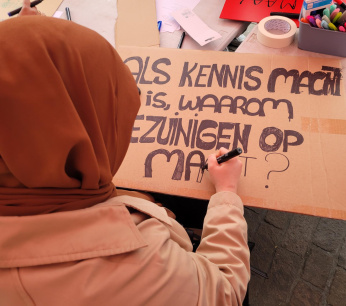 ALS KENNIS MACHT
is, WAAROM
EZUINIGEN OP
MA T?